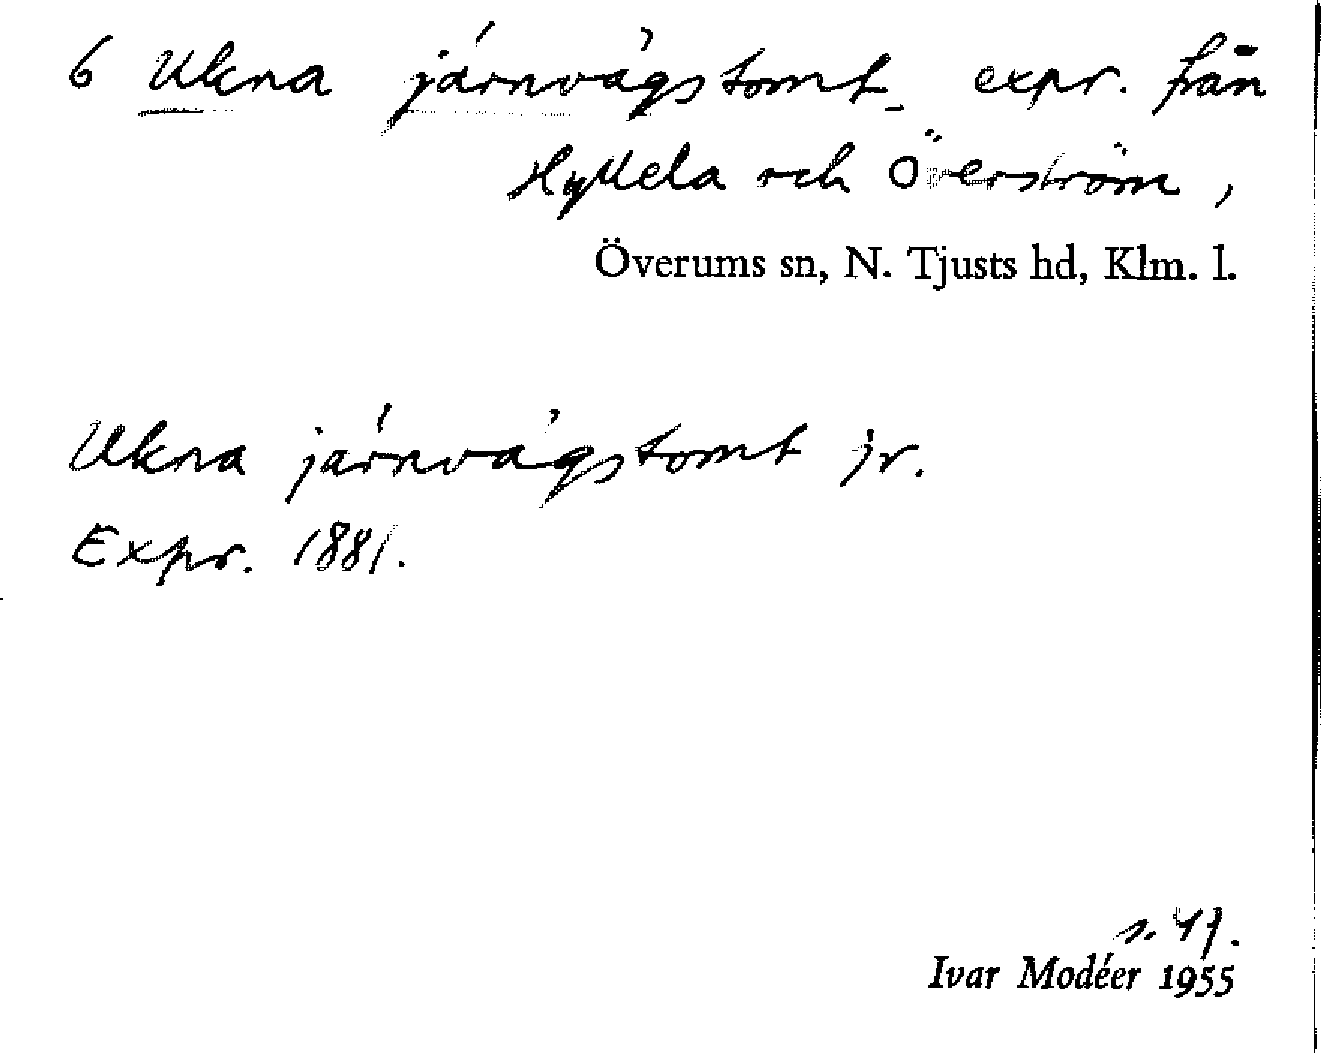 6 Ukna järnvägstomt, expr. från
Hyllela och Överström,
Överums sn, N. Tjusts hd, Klm. l.
Ukna järnvägstomt jr.
Expr. 1881.
s. 47.
Ivar Modéer 1955